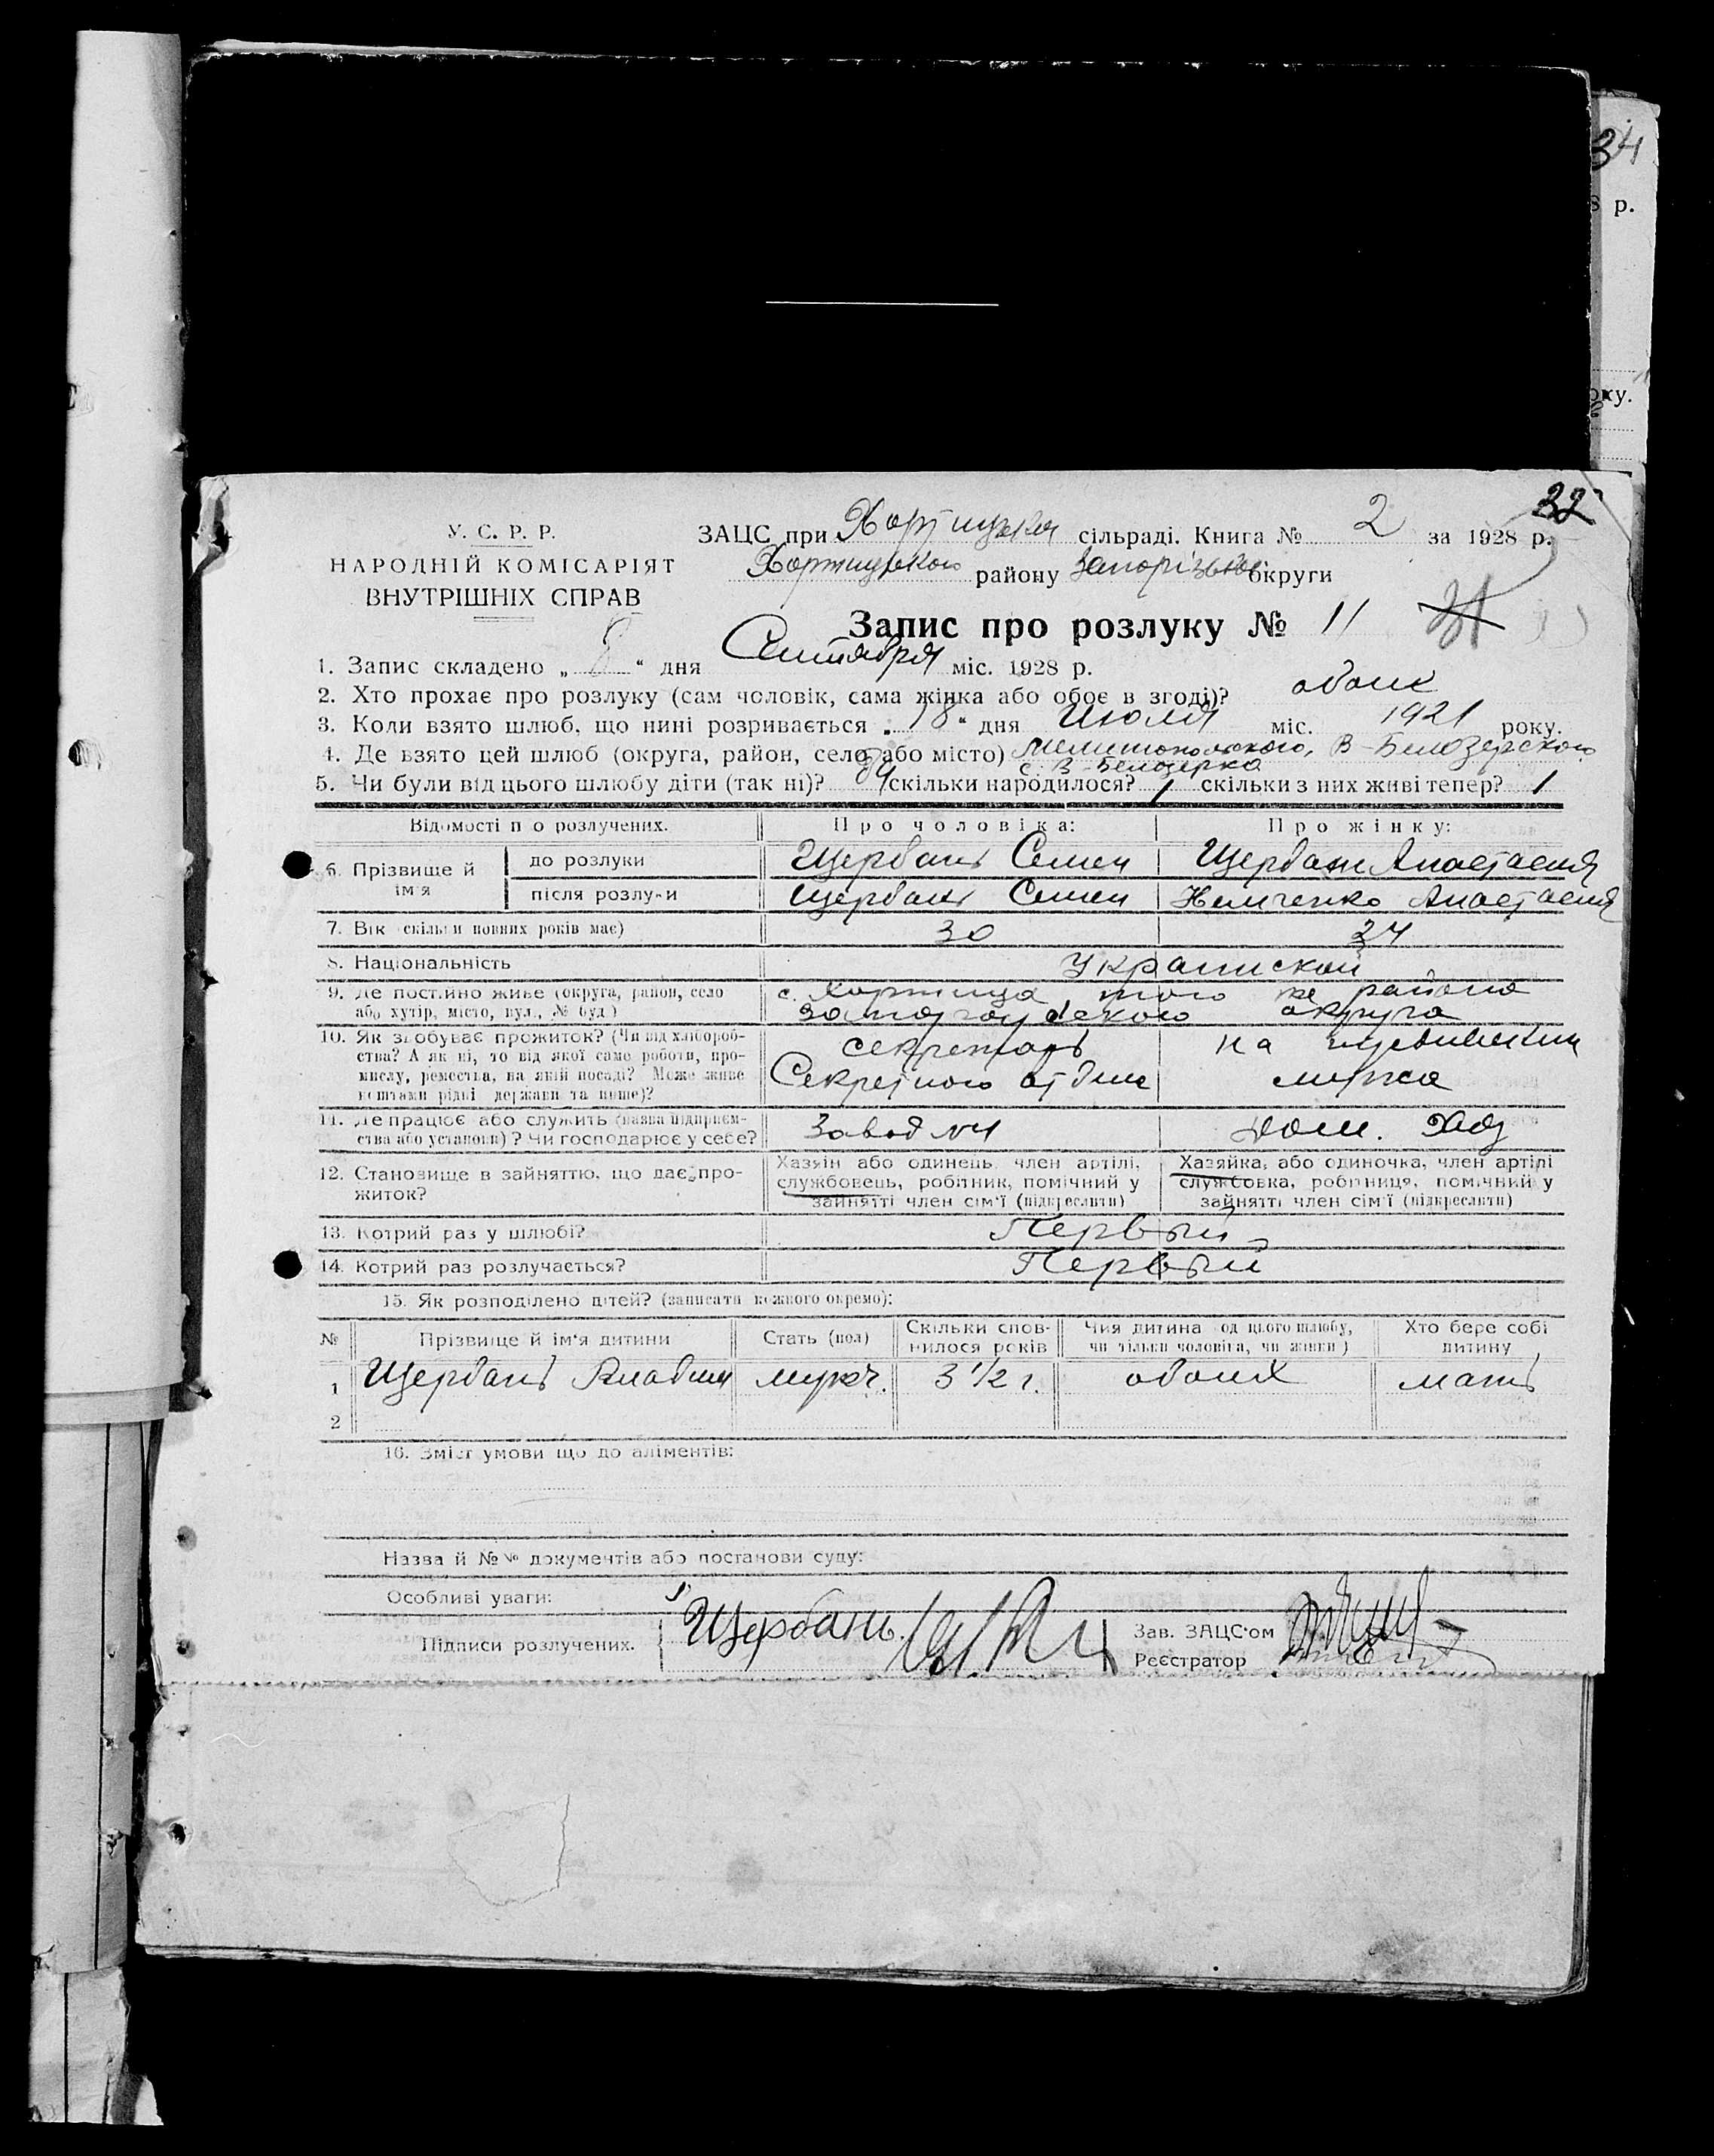 34
р.
оку.
22
У. С. Р. Р.
НАРОДНІЙ КОМІСАРІЯТ
ВНУТРІШНІХ СПРАВ
ЗАЦС при сільраді. Книга № 2 за 1928 р.
Хортицького району Запорізької округи
Запис про розлуку № 11
1. Запис складено „ 8 “ дня Сентября міс. 1928 р.
2. Хто прохає про розлуку (сам чоловік, сама жінка або обоє в згоді)?
3. Коли взято шлюб, що нині розривається „ 18 “ дня Июля міс. 1921 року.
4. Де взято цей шлюб (округа, район, село або місто) Мелитопольского, В-Белозерского
с. В-Белозерка
5. Чи були від цього шлюбу діти (так ні)? скільки народилося? 1 скільки з них живі тепер? 1
Відомості по розлучених. Про чоловіка: Про жінку:
6. Прізвище й ім'я до розлуки Щербань Семен Щербань Анастасия
після розлуки Щербань Семен Немченко Анастасия
7. Вік (скільки повних років має) 30 24
8. Національність
9. Де постійно живе (округа, район, село с. Хортица того же района
або хутір, місто, вул., № буд.) округа
10. Як здобуває прожиток? (Чи від хлібороб- секретарь на иждивении
ства? А як ні, то від якої саме роботи, про- Секретного мужа
мислу, ремества, на якій посаді? Може живе
коштами рідні держави та инше)?
11. Де працює або служить (назва підприєм- Завод №4 Дом. Хоз
ства або установи)? Чи господарює у себе?
12. Становище в зайняттю, що дає про- Хазяїн або одинець, член артілі, Хазяйка, або одиночка, член артілі
житок? службовець, робітник, помічний у службовка, робітниця, помічний у
зайнятті член сім'ї (підкреслити) зайнятті член сім'ї (підкреслити)
13. Котрий раз у шлюбі? Первый
14. Котрий раз розлучається? Первый
15. Як розподілено дітей? (записати кожного окремо):
№ Прізвище й ім'я дитини Стать (пол) Скільки спов- Чия дитина (од цього шлюбу, Хто бере собі
нилося років чи тільки чоловіка, чи жінки) дитину
1 Щербань муж. 3 1/2 г. обоих мать
2
16. Зміст умови що до аліментів:
Назва й №№ документів або постанови суду:
Особливі уваги:
Підписи розлучених. Щербань Зав. ЗАЦС'ом
Реєстратор